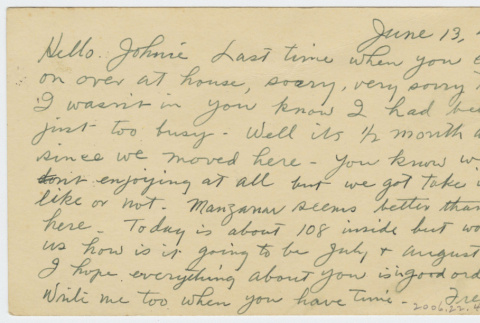 June 13,
Hello. Johnie Last time when you
on over at house, soary, very sorry
I wasn't in you know I had
just too busy - Well its 1/2 month
since we moved here - you know
dont enjoying at all but we got take
like or not. Manzanar seems better than
here. Today is about 108 inside but
us how is it going to be July & August
I hope everything about you is in good
Write me too when you have time -
2006.22.4